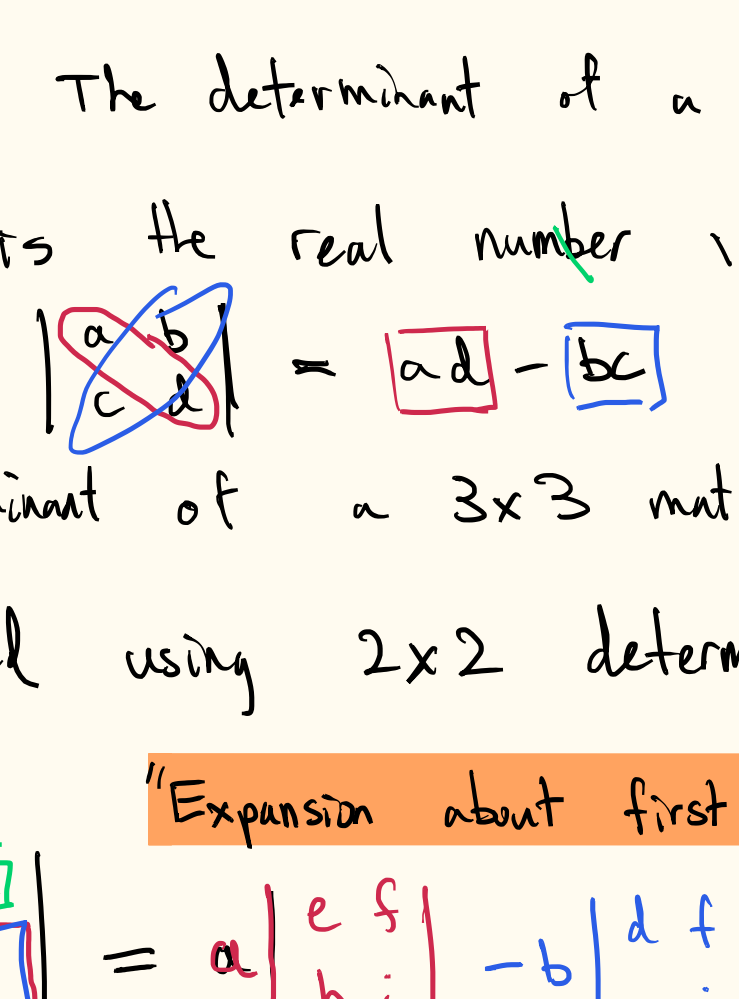 The determinant of a
is the real number
| a b | = ad - bc
| c d |
inant of a 3x3 mat
using 2x2 determ
"Expansion about first
= a | e f | - b | d f
h i